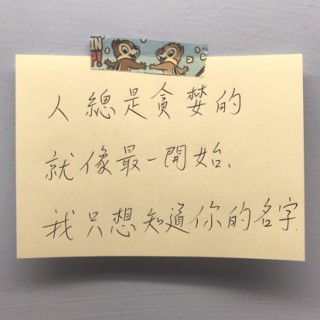 人總是貪婪的
就像最一開始、
我只想知道你的名字.